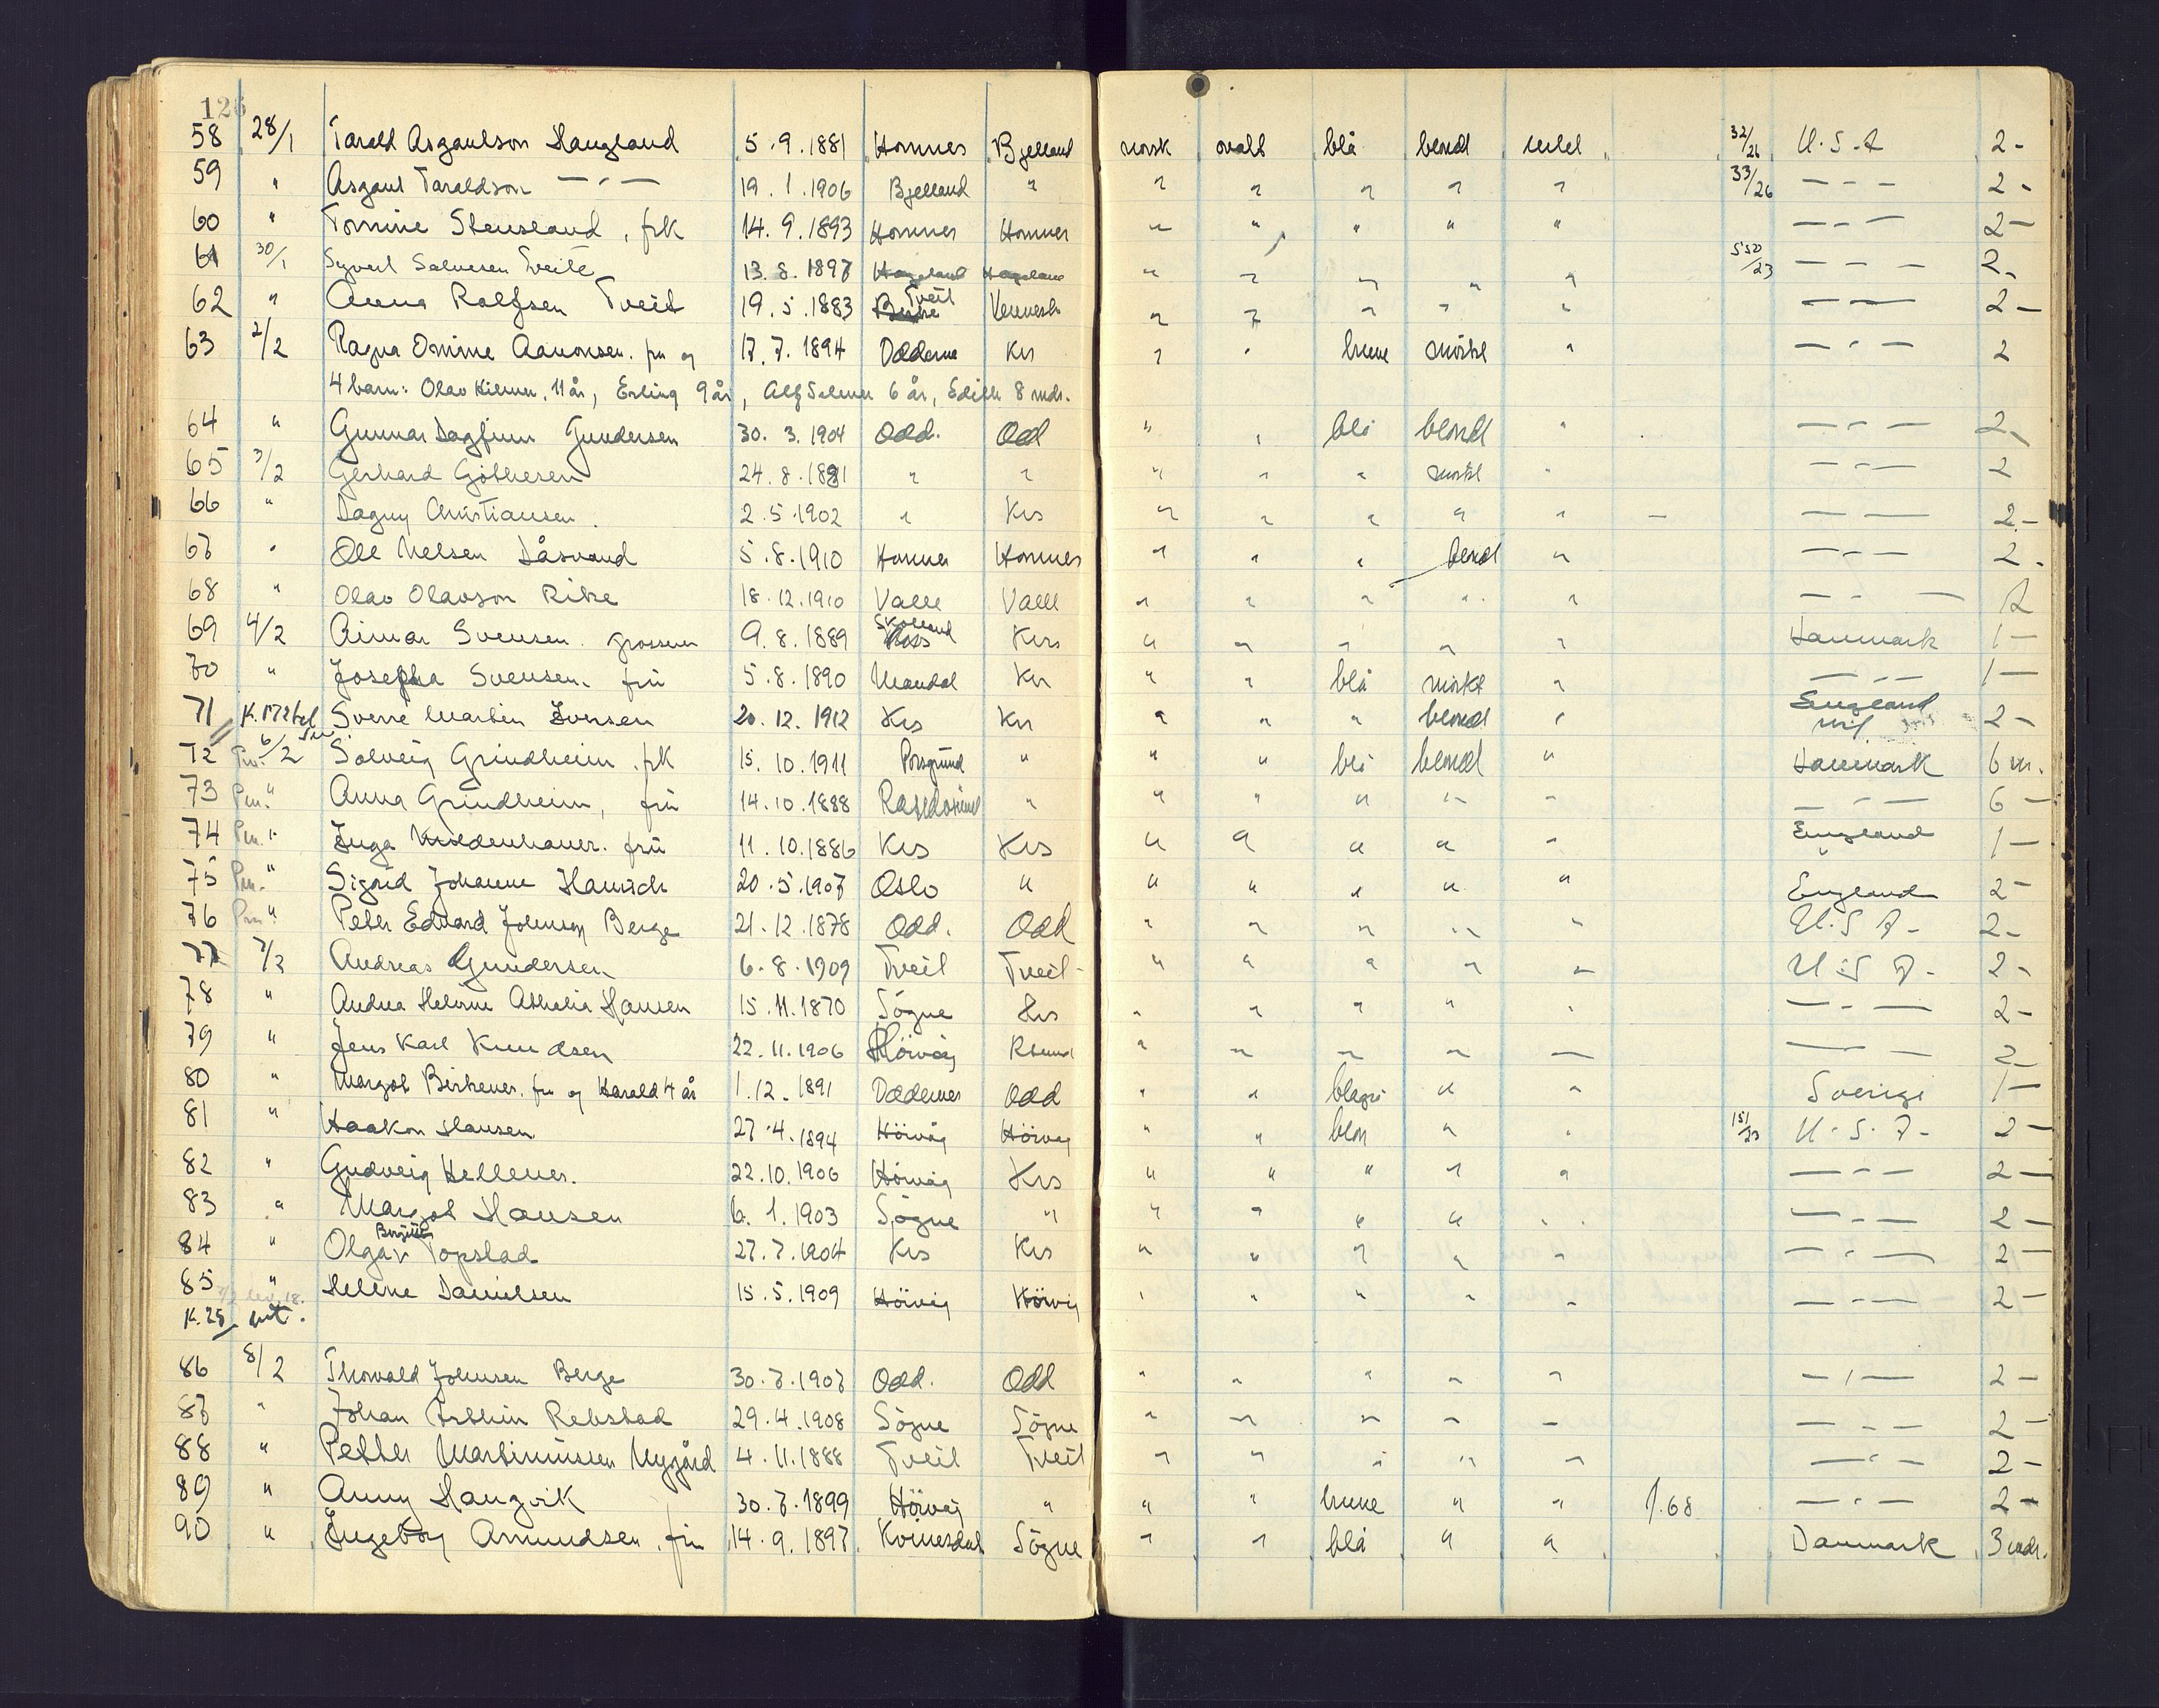 126
58 28/1 Tarald Asgaulson Haugland 5.9.1881 Homnes Bjelland norsk ovalt blå blond 32/26 U.S.A 2-
59 " Asgaul Taraldson —"— 19.1.1906 Bjelland " " " " " " 33/26 —"— 2-
60 " Tomine Stensland, frk 14.9.1893 Homnes Homnes " " " " " —"— 2-
61 30/1 Syvert Salvesen Tveite 13.8.1897 Hægeland Hægeland " " " " " 550/23 —"— 2-
62 " Anna Rolfsen Tveit 19.5.1883 Tveit Vennesla " " " " " —"— 2-
63 2/2 Ragna Omine Aanonsen. fru og 17.7.1894 Oddernes Krs " " brune mörkt " —"— 2
4 barn: Olav Hilmer, 11 år, Erling 9 år, Alf Selmer 6 år, Edith 8 mdr.
64 " Gunnar Dagfinn Gundersen 30.3.1904 Odd. Odd " " blå blond " —"— 2-
65 3/2 Gerhard Göthesen 24.8.1891 " " " " " mörkt " —"— 2
66 " Dagny Christiansen. 2.5.1902 " Krs " " " " " — —"— 2-
67 " Ole Nelsen Dåsvand 5.8.1910 Homnes Homnes " " " blond " —"— 2-
68 " Olav Olavson Rike 18.12.1910 Valle Valle " " " " " —"— 2
69 4/2 Reimar Svensen. grosserer 9.8.1889 Krs " " " " " Danmark 1-
70 " Josepha Svensen. frü 5.8.1890 Mandal Kr " " blå mörkt " —"— 1-
71 K. 172 bel Sverre Martin Iversen 20.12.1912 Krs Kr " " " blond " England 2-
72 Pm. 6/2 Solveig Grindheim. frk 15.10.1911 Porsgrund " " " blå blond " Danmark 6 m.
73 Pm. " Anna Grindheim, frü 14.10.1888 " " " " " " —"— 6-
74 Pm. " Inga Moldenhauer. frü 11.10.1886 Krs Krs " " " " " England 1-
75 Pm. " Sigrid Johanne Hanisch 20.5.1907 Oslo " " " " " " England 2-
76 Pm " Peter Edvard Johnsen Berge 21.12.1878 Odd. Odd " " " " " U.S.A- 2-
77 7/2 Andreas Gundersen 6.8.1909 Tveit Tveit- " " " " " U.S.A- 2-
78 " Andrea Helene Athalia Hansen 15.11.1870 Sögne Krs " " " " " —"— 2-
79 " Jens Karl Knudsen 22.11.1906 Höivåg " " " " " —"— 2-
80 " Margot Birkenes. fru og Harald 4 år 1.12.1891 Oddernes Odd " " blågrå " " Sverige 1-
81 " Haakon Hansen 27.4.1894 Höivåg Höivåg " " " " 151/23 U.S.A- 2-
82 " Gudveig Hellenes. 22.10.1906 Höivåg Krs " " " " " —"— 2-
83 " Margot Hansen 6.1.1903 Sögne " " " " " " —"— 2-
84 " Olga Birgitte Topstad 27.7.1904 Krs Krs " " " " " —"— 2-
85 " Helene Danielsen 15.5.1909 Höivåg Höivåg " " " " " —"— 2-
K. 25
86 8/2 Thorvald Johnsen Berge 30.7.1907 Odd. Odd " " " " " —"— 2-
87 " Johan Arthin Rebstad 29.4.1908 Sögne Sögne " " " " " —"— 2-
88 " Petter Martiniussen Nygård 4.11.1888 Tveit Tveit " " " " " —"— 2-
89 " Anny Haugvik 30.7.1899 Höivåg " " " brune " " 1.68 —"— 2-
90 " Ingeborg Amundsen. frü 14.9.1897 Kvinesdal Sögne " " blå " " Danmark 3 mdr.